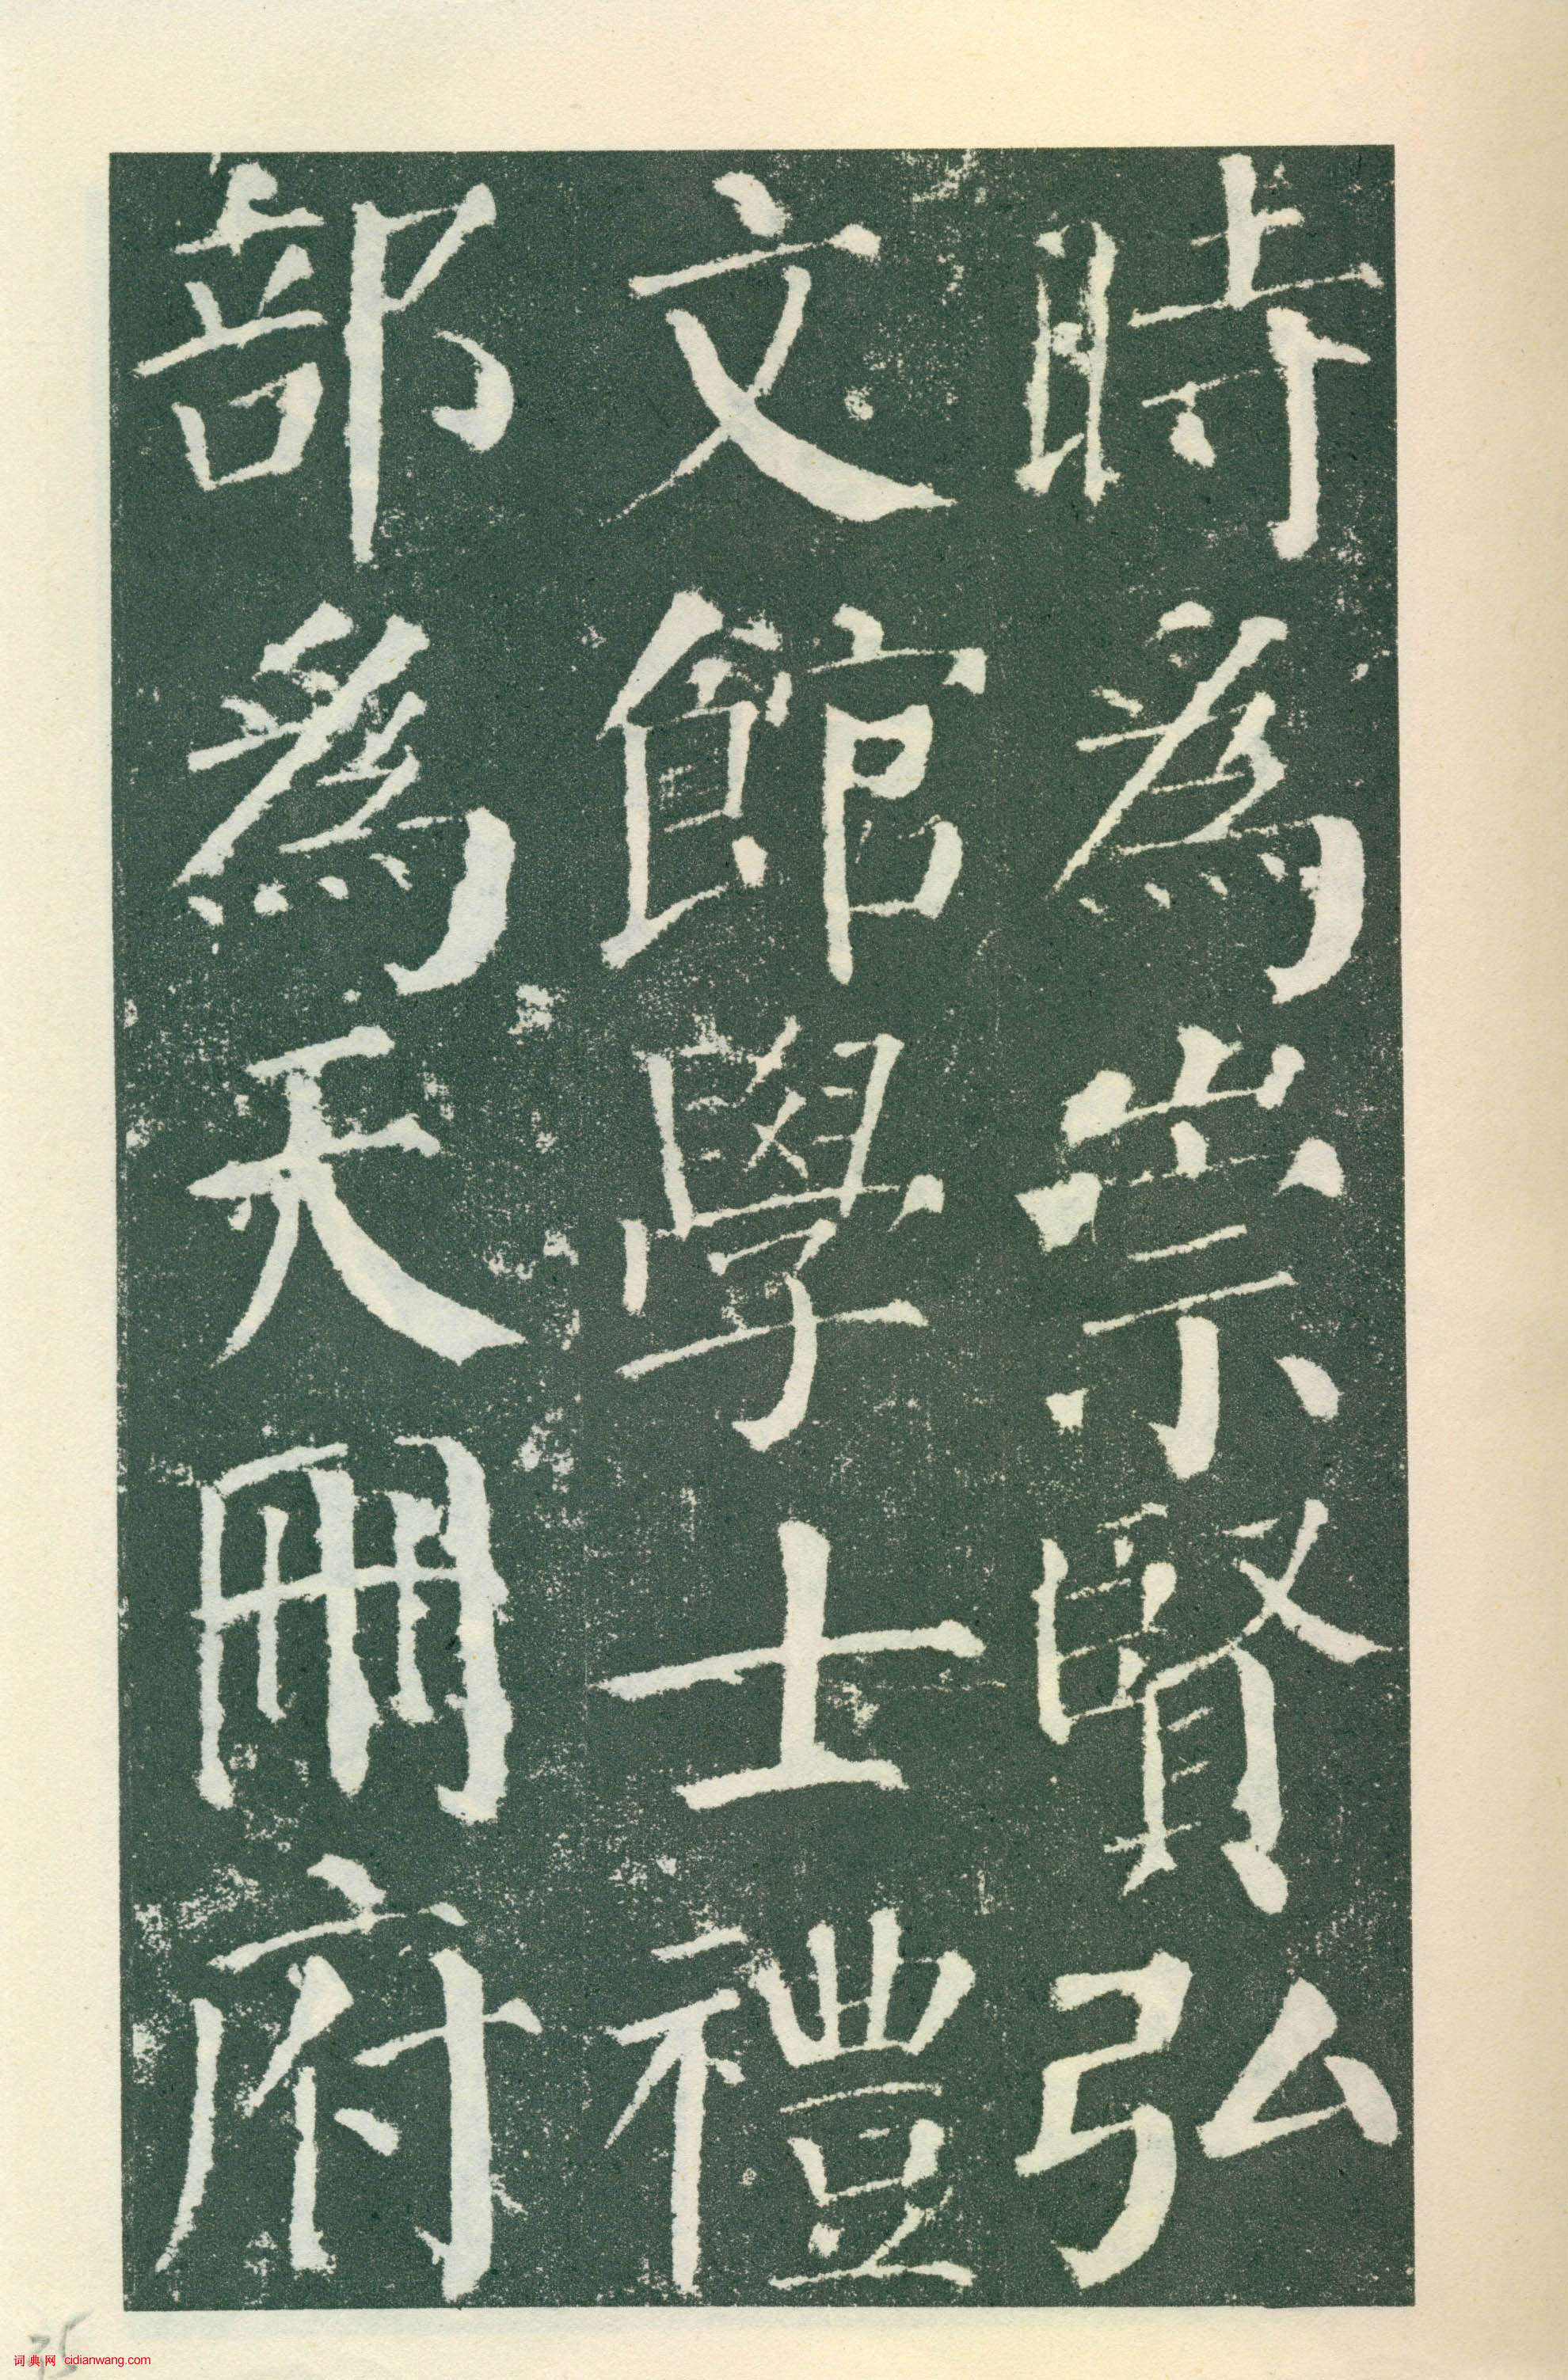 時為崇賢弘
文館學士禮
部為天冊府
75
词典网 cidianwang.com